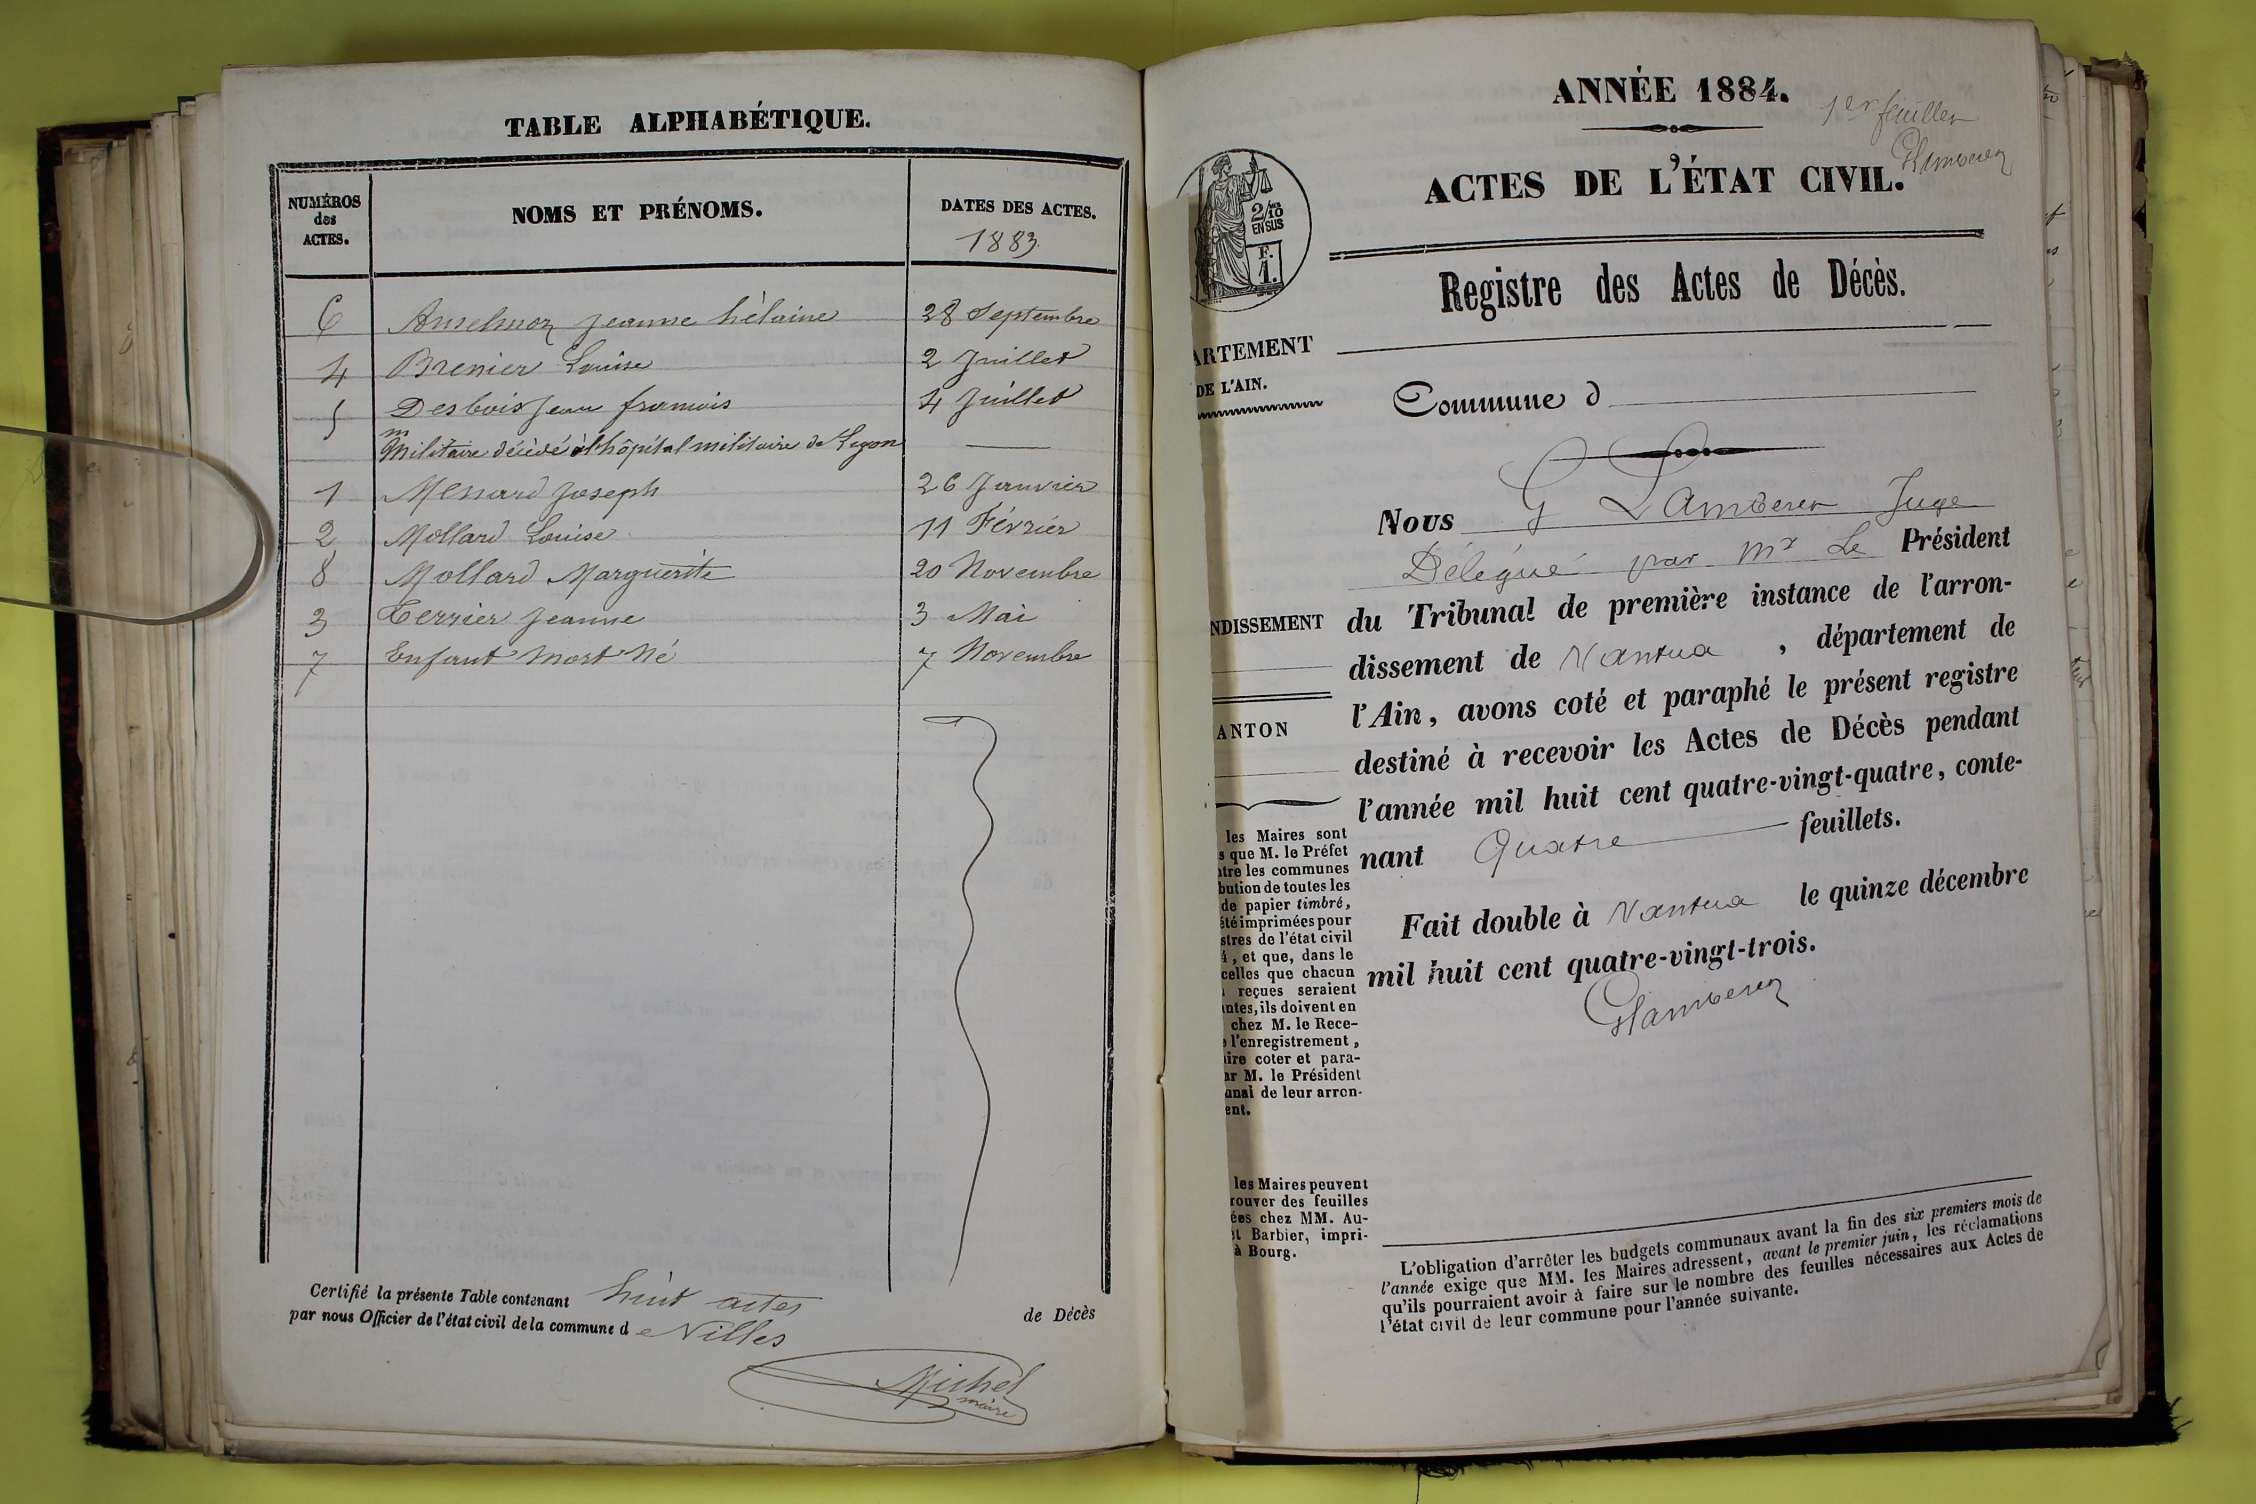 TABLE ALPHABÉTIQUE.
NUMÉROS
des
ACTES.
NOMS ET PRÉNOMS.
DATES DES ACTES.
1883
6 Anselmoz Jeanne hélaine 28 Septembre
4 Brenier Louise 2 Juillet
5 Desbois Jean francois 4 Juillet
Militaire décédé à l'hôpital militaire de Lyon
1 Messard Joseph 26 Janvier
2 Mollard Louise 11 Février
8 Mollard Marguerite 20 Novembre
3 Terrier Jeanne 3 Mai
7 Enfant Mort Né 7 Novembre
Certifié la présente Table contenant huit actes de Décès
par nous Officier de l'état civil de la commune de Villes
Michel
maire
ANNÉE 1884.
1er feuillet
ACTES DE L'ÉTAT CIVIL.
2/10
EN SUS
F.
1.
Registre des Actes de Décès.
ARTEMENT
DE L'AIN.
Commune d
Nous G Lamberet Juge
Délégué par Mr Le Président
NDISSEMENT
du Tribunal de première instance de l'arron-
dissement de Nantua, département de
l'Ain, avons coté et paraphé le présent registre
ANTON
destiné à recevoir les Actes de Décès pendant
l'année mil huit cent quatre-vingt-quatre, conte-
nant Quatre feuillets.
Fait double à Nantua le quinze décembre
mil huit cent quatre-vingt-trois.
les Maires sont
s que M. le Préfet
tre les communes
bution de toutes les
de papier timbré,
été imprimées pour
stres de l'état civil
4, et que, dans le
celles que chacun
reçues seraient
ntes, ils doivent en
chez M. le Rece-
l'enregistrement,
ire coter et para-
ar M. le Président
unal de leur arron-
ent.
les Maires peuvent
rouver des feuilles
ées chez MM. Au-
et Barbier, impri-
à Bourg.
L'obligation d'arrêter les budgets communaux avant la fin des six premiers mois de
l'année exige que MM. les Maires adressent, avant le premier juin, les réclamations
qu'ils pourraient avoir à faire sur le nombre des feuilles nécessaires aux Actes de
l'état civil de leur commune pour l'année suivante.